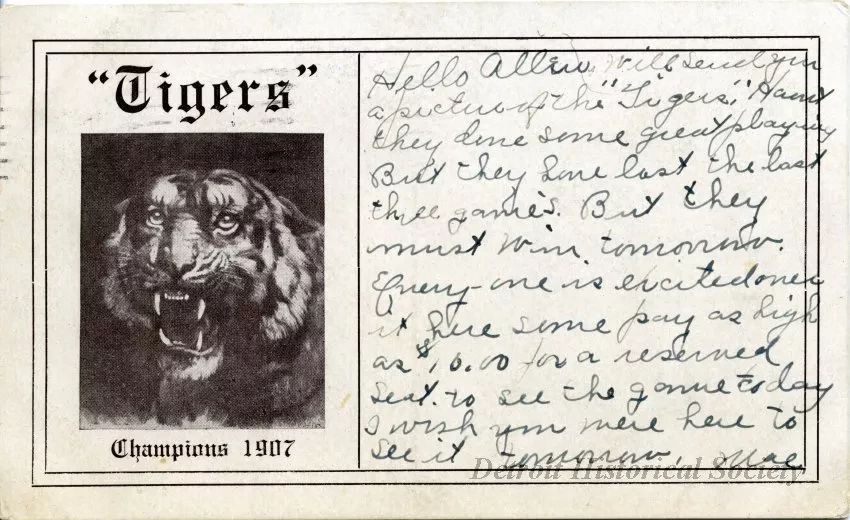 "Tigers"
Champions 1907
Hello Allen, will send you
a picture of the "Tigers". Hant
they done some great playing
But they have lost the last
three games. But they
must win tomorrow.
Every-one is excited over
it here some pay as high
as $10.00 for a reserved
seat. to see the game today
I wish you were here to
see it tomorrow. Mae
Detroit Historical Society